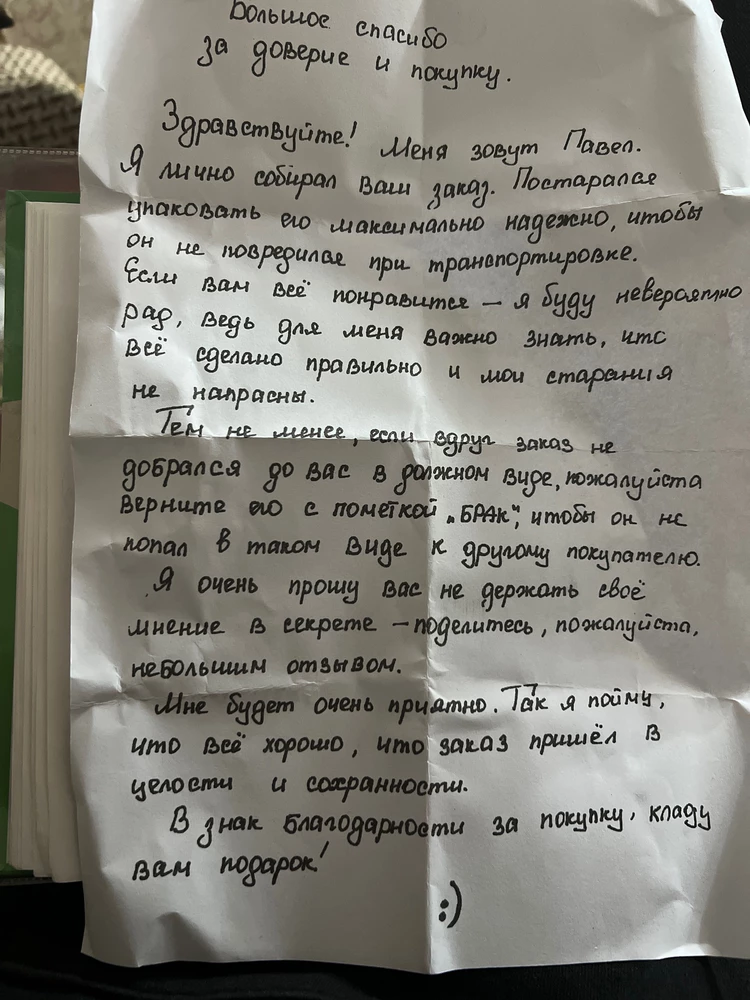 Большое спасибо
за доверие и покупку.
Здравствуйте! Меня зовут Павел.
Я лично собирал Ваш заказ. Постарался
упаковать его максимально надежно, чтобы
он не повредился при транспортировке.
Если вам всё понравится — я буду невероятно
рад, ведь для меня важно знать, что
всё сделано правильно и мои старания
не напрасны.
Тем не менее, если вдруг заказ не
добрался до вас в должном виде, пожалуйста
верните его с пометкой „БРАК“, чтобы он не
попал в таком виде к другому покупателю.
Я очень прошу вас не держать своё
мнение в секрете — поделитесь, пожалуйста,
небольшим отзывом.
Мне будет очень приятно. Так я пойму,
что всё хорошо, что заказ пришёл в
целости и сохранности.
В знак благодарности за покупку, кладу
вам подарок!
:)